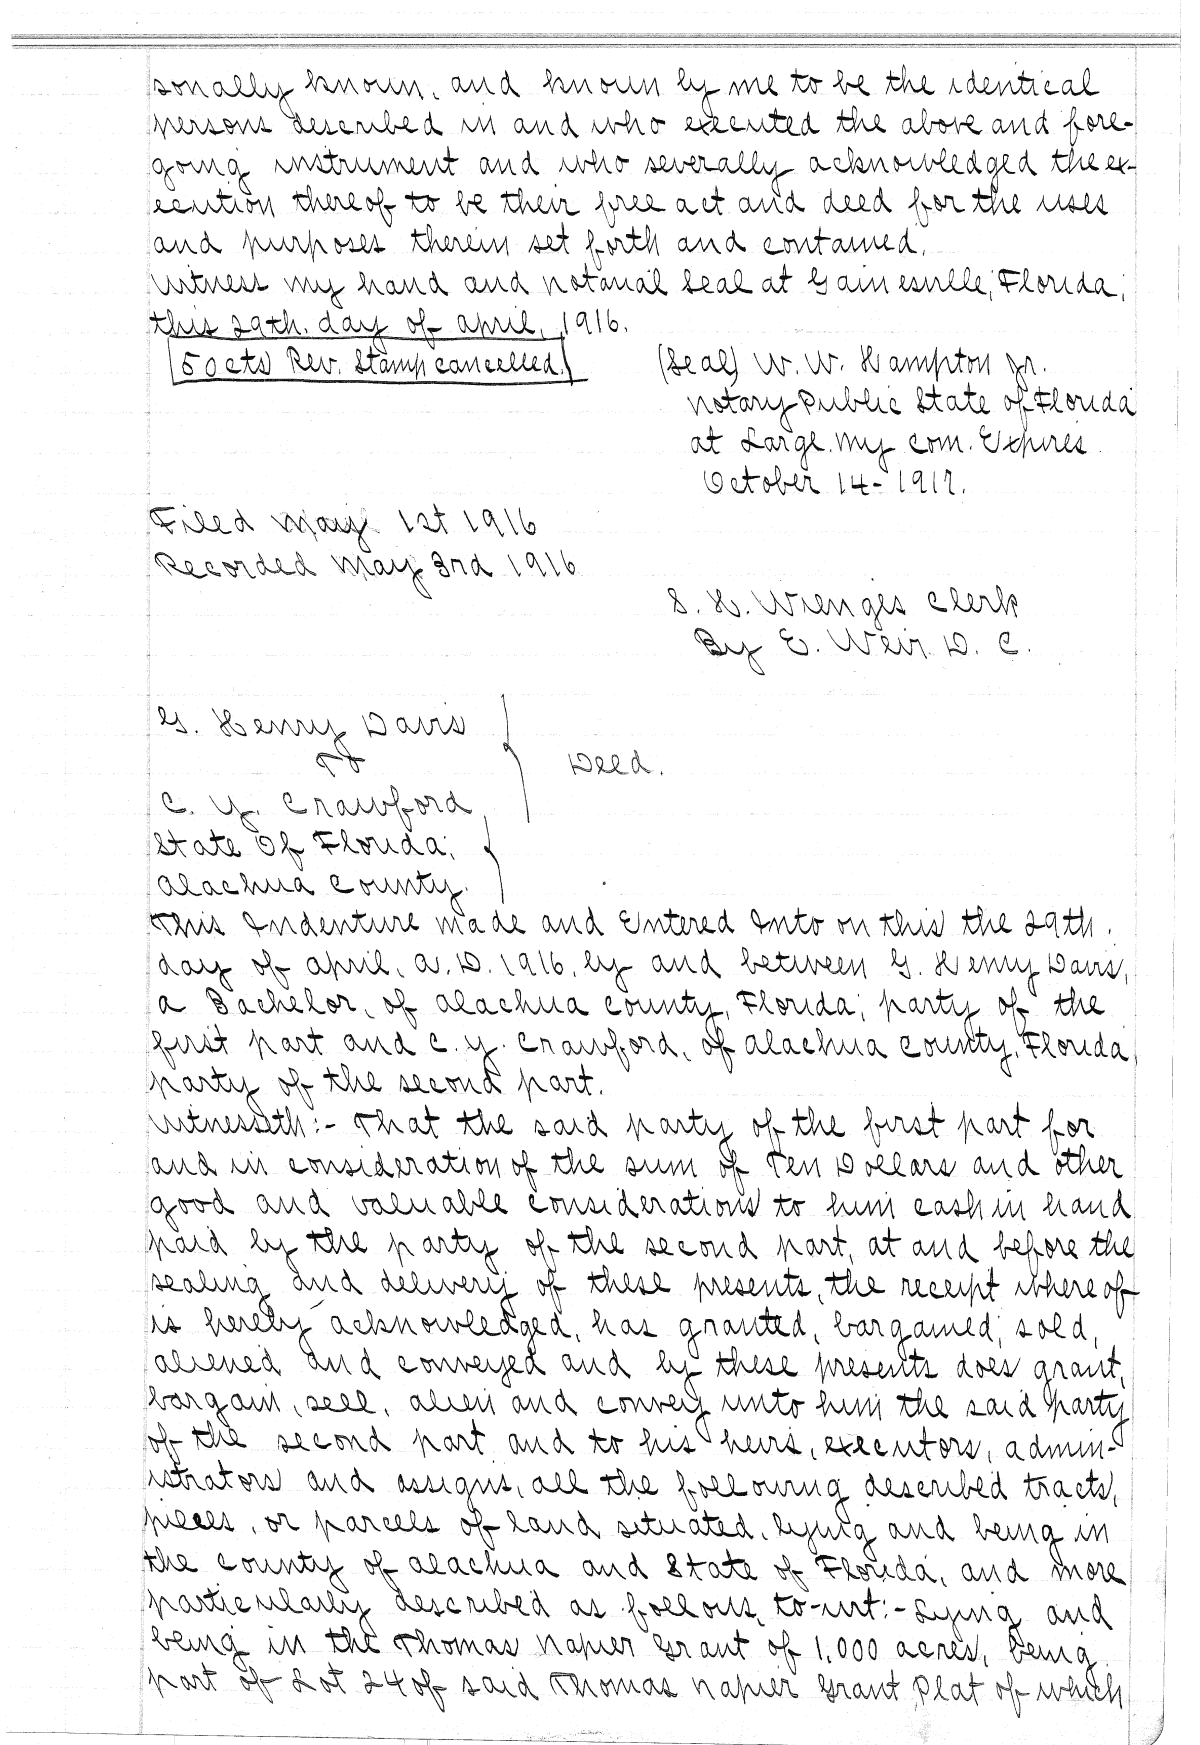 sonally known, and known by me to be the identical
persons described in and who executed the above and fore-
going instrument and who severally acknowledged the ex-
ecution thereof to be their free act and deed for the uses
and purposes therein set forth and contained.
Witness my hand and notarial Seal at Gainesville, Florida,
this 29th. day of April, 1916.
50cts Rev. Stamp cancelled.
(Seal) W. W. Hampton Jr.
Notary Public State of Florida
at Large. My Com. Expires
October 14-1917.
Filed May 1st 1916
Recorded May 3rd 1916
S. H. Wienges Clerk
By E. Weir. D. C.
G. Henry Davis
To
C. Y. Crawford
Deed.
State Of Florida,
Alachua County.
This Indenture made and Entered Into on this the 29th.
day of April, A.D. 1916, by and between G. Henry Davis,
a Bachelor, of Alachua County, Florida, party of the
first part and C. Y. Crawford, of Alachua County, Florida,
party of the second part.
Witnesseth:- That the said party of the first part for
and in consideration of the sum of Ten Dollars and other
good and valuable considerations to him cash in hand
paid by the party of the second part, at and before the
sealing and delivery of these presents, the receipt whereof
is hereby acknowledged, has granted, bargained, sold,
aliened and conveyed and by these presents does grant,
bargain, sell, alien and convey unto him the said party
of the second part and to his heirs, executors, admin-
istrators and assigns, all the following described tracts,
pieces, or parcels of land situated, lying and being in
the County of Alachua and State of Florida, and more
particularly described as follows, to-wit:- Lying and
being in the Thomas Napier Grant of 1,000 acres, being
part of Lot 24 of said Thomas Napier Grant, Plat of which